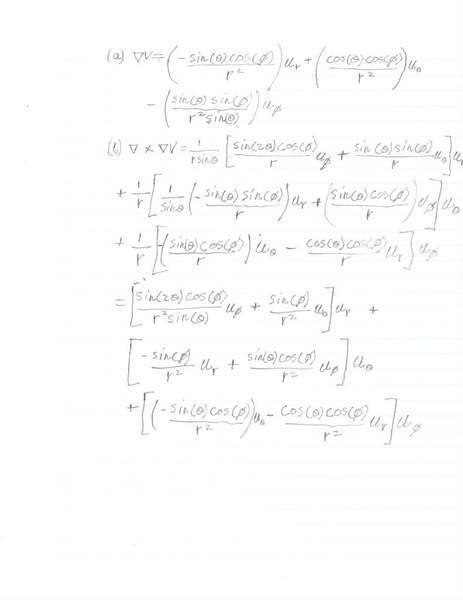 (a) ∇V = (-sin(θ)cos(φ)/r²)u_r + (cos(θ)cos(φ)/r²)u_θ
- (sin(θ)sin(φ)/r²sin(θ))u_φ
(b) ∇ × ∇V = 1/rsinθ [sin(2θ)cos(φ)/r u_φ + sin(θ)sin(φ)/r u_θ]u_r
+ 1/r [1/sinθ (-sin(θ)sin(φ)/r)u_r + (sin(θ)cos(φ)/r)u_φ]u_θ
+ 1/r [-(sin(θ)cos(φ)/r)u_θ - cos(θ)cos(φ)/r u_r]u_φ
= [sin(2θ)cos(φ)/r²sin(θ) u_φ + sin(φ)/r² u_θ]u_r +
[-sin(φ)/r² u_r + sin(θ)cos(φ)/r² u_φ]u_θ
+ [(-sin(θ)cos(φ)/r²)u_θ - cos(θ)cos(φ)/r² u_r]u_φ